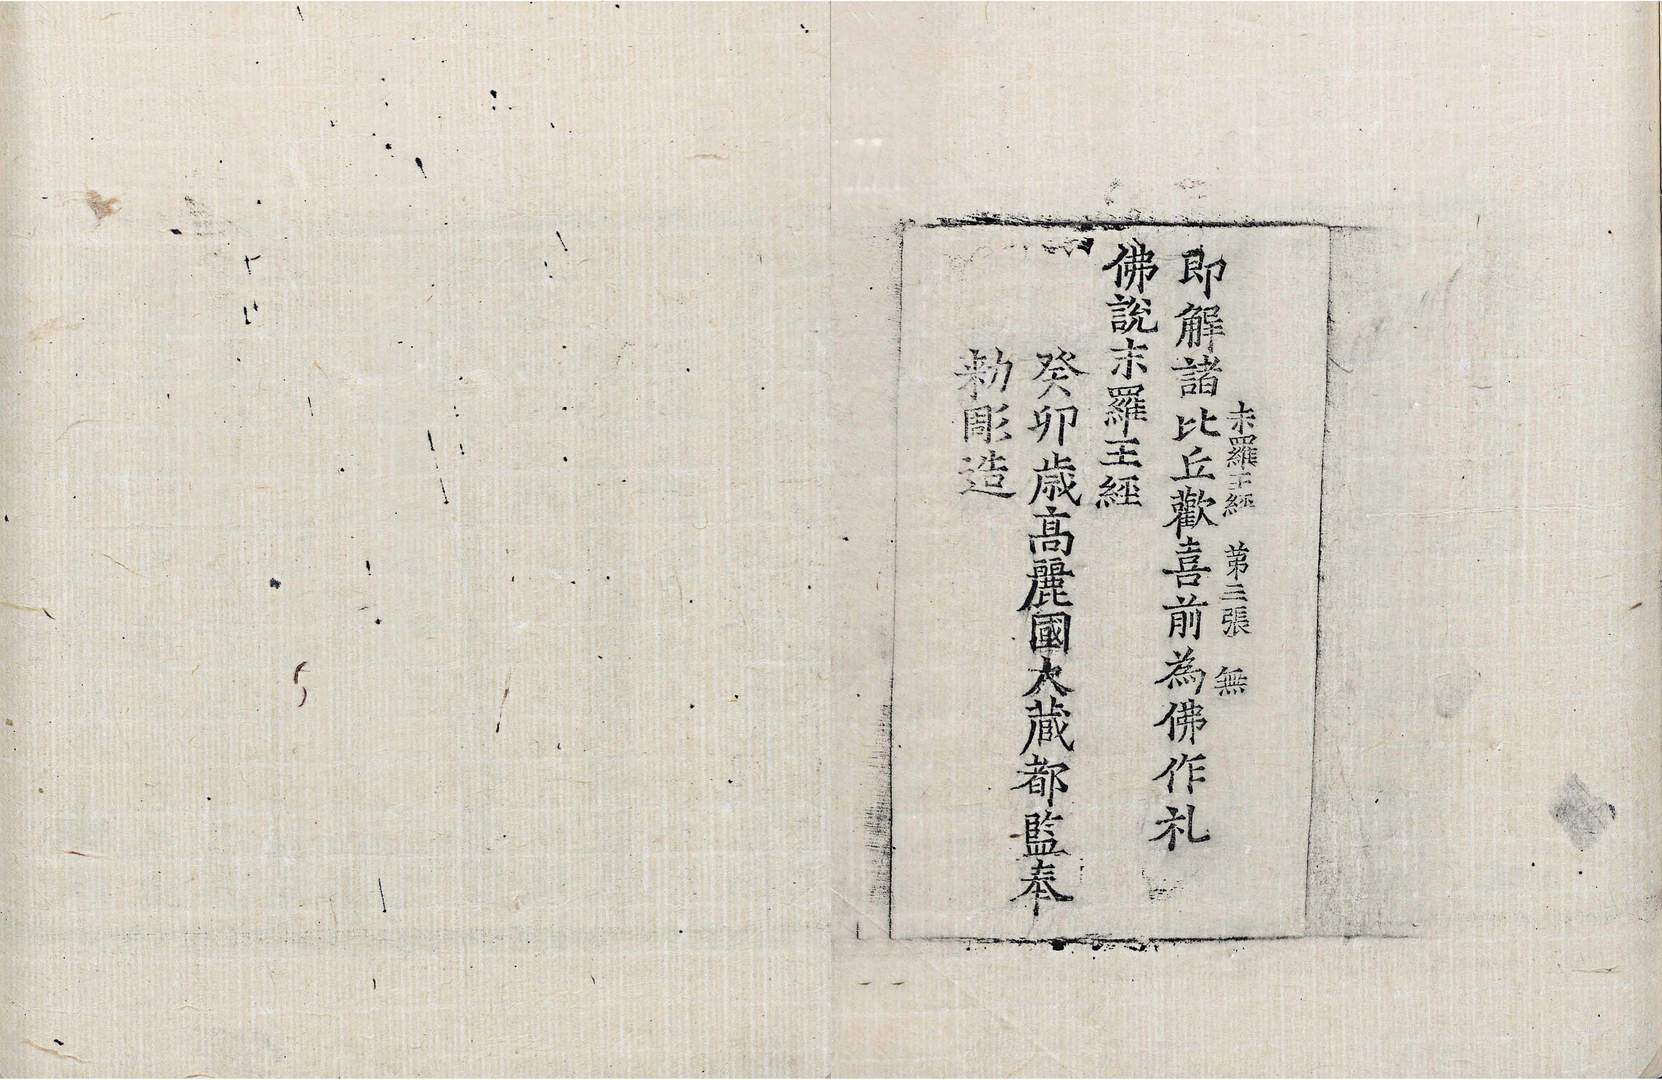 末羅王經 第三張 無
即解諸比丘歡喜前為佛作礼
佛說末羅王經
癸卯歲高麗國大藏都監奉
勅彫造